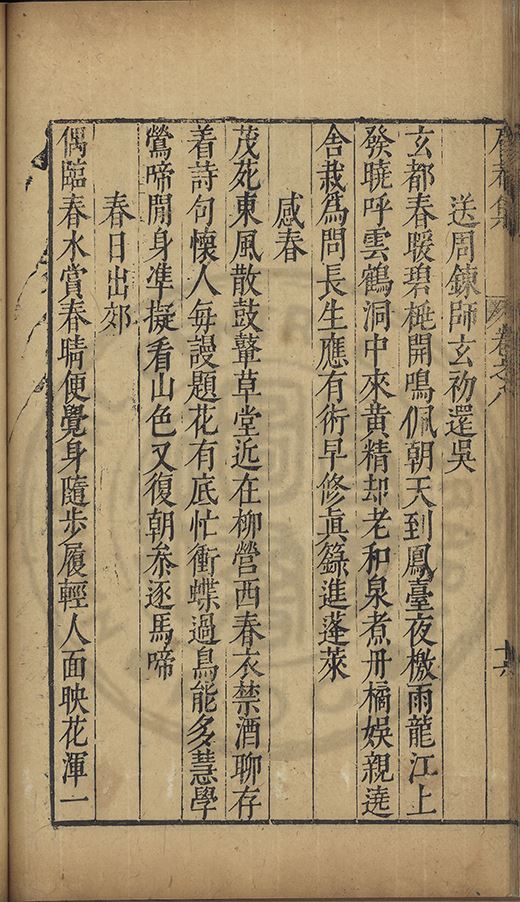 集 卷之八 十六
送周鍊師玄初還吳
玄都春暖碧桃開鳴佩朝天到鳳臺夜檄雨龍江上
發曉呼雲鶴洞中來黃精却老和泉煮丹橘娛親遶
舍栽爲問長生應有術早修眞籙進蓬萊
感春
茂死東風散鼓鼙草堂近在柳營西春衣禁酒聊存
着詩句懷人每謾題花有底忙衝蝶過鳥能多慧學
鶯啼閒身準擬看山色又復朝叅逐馬啼
春日出郊
偶臨春水賞春晴便覺身隨步履輕人面映花渾一